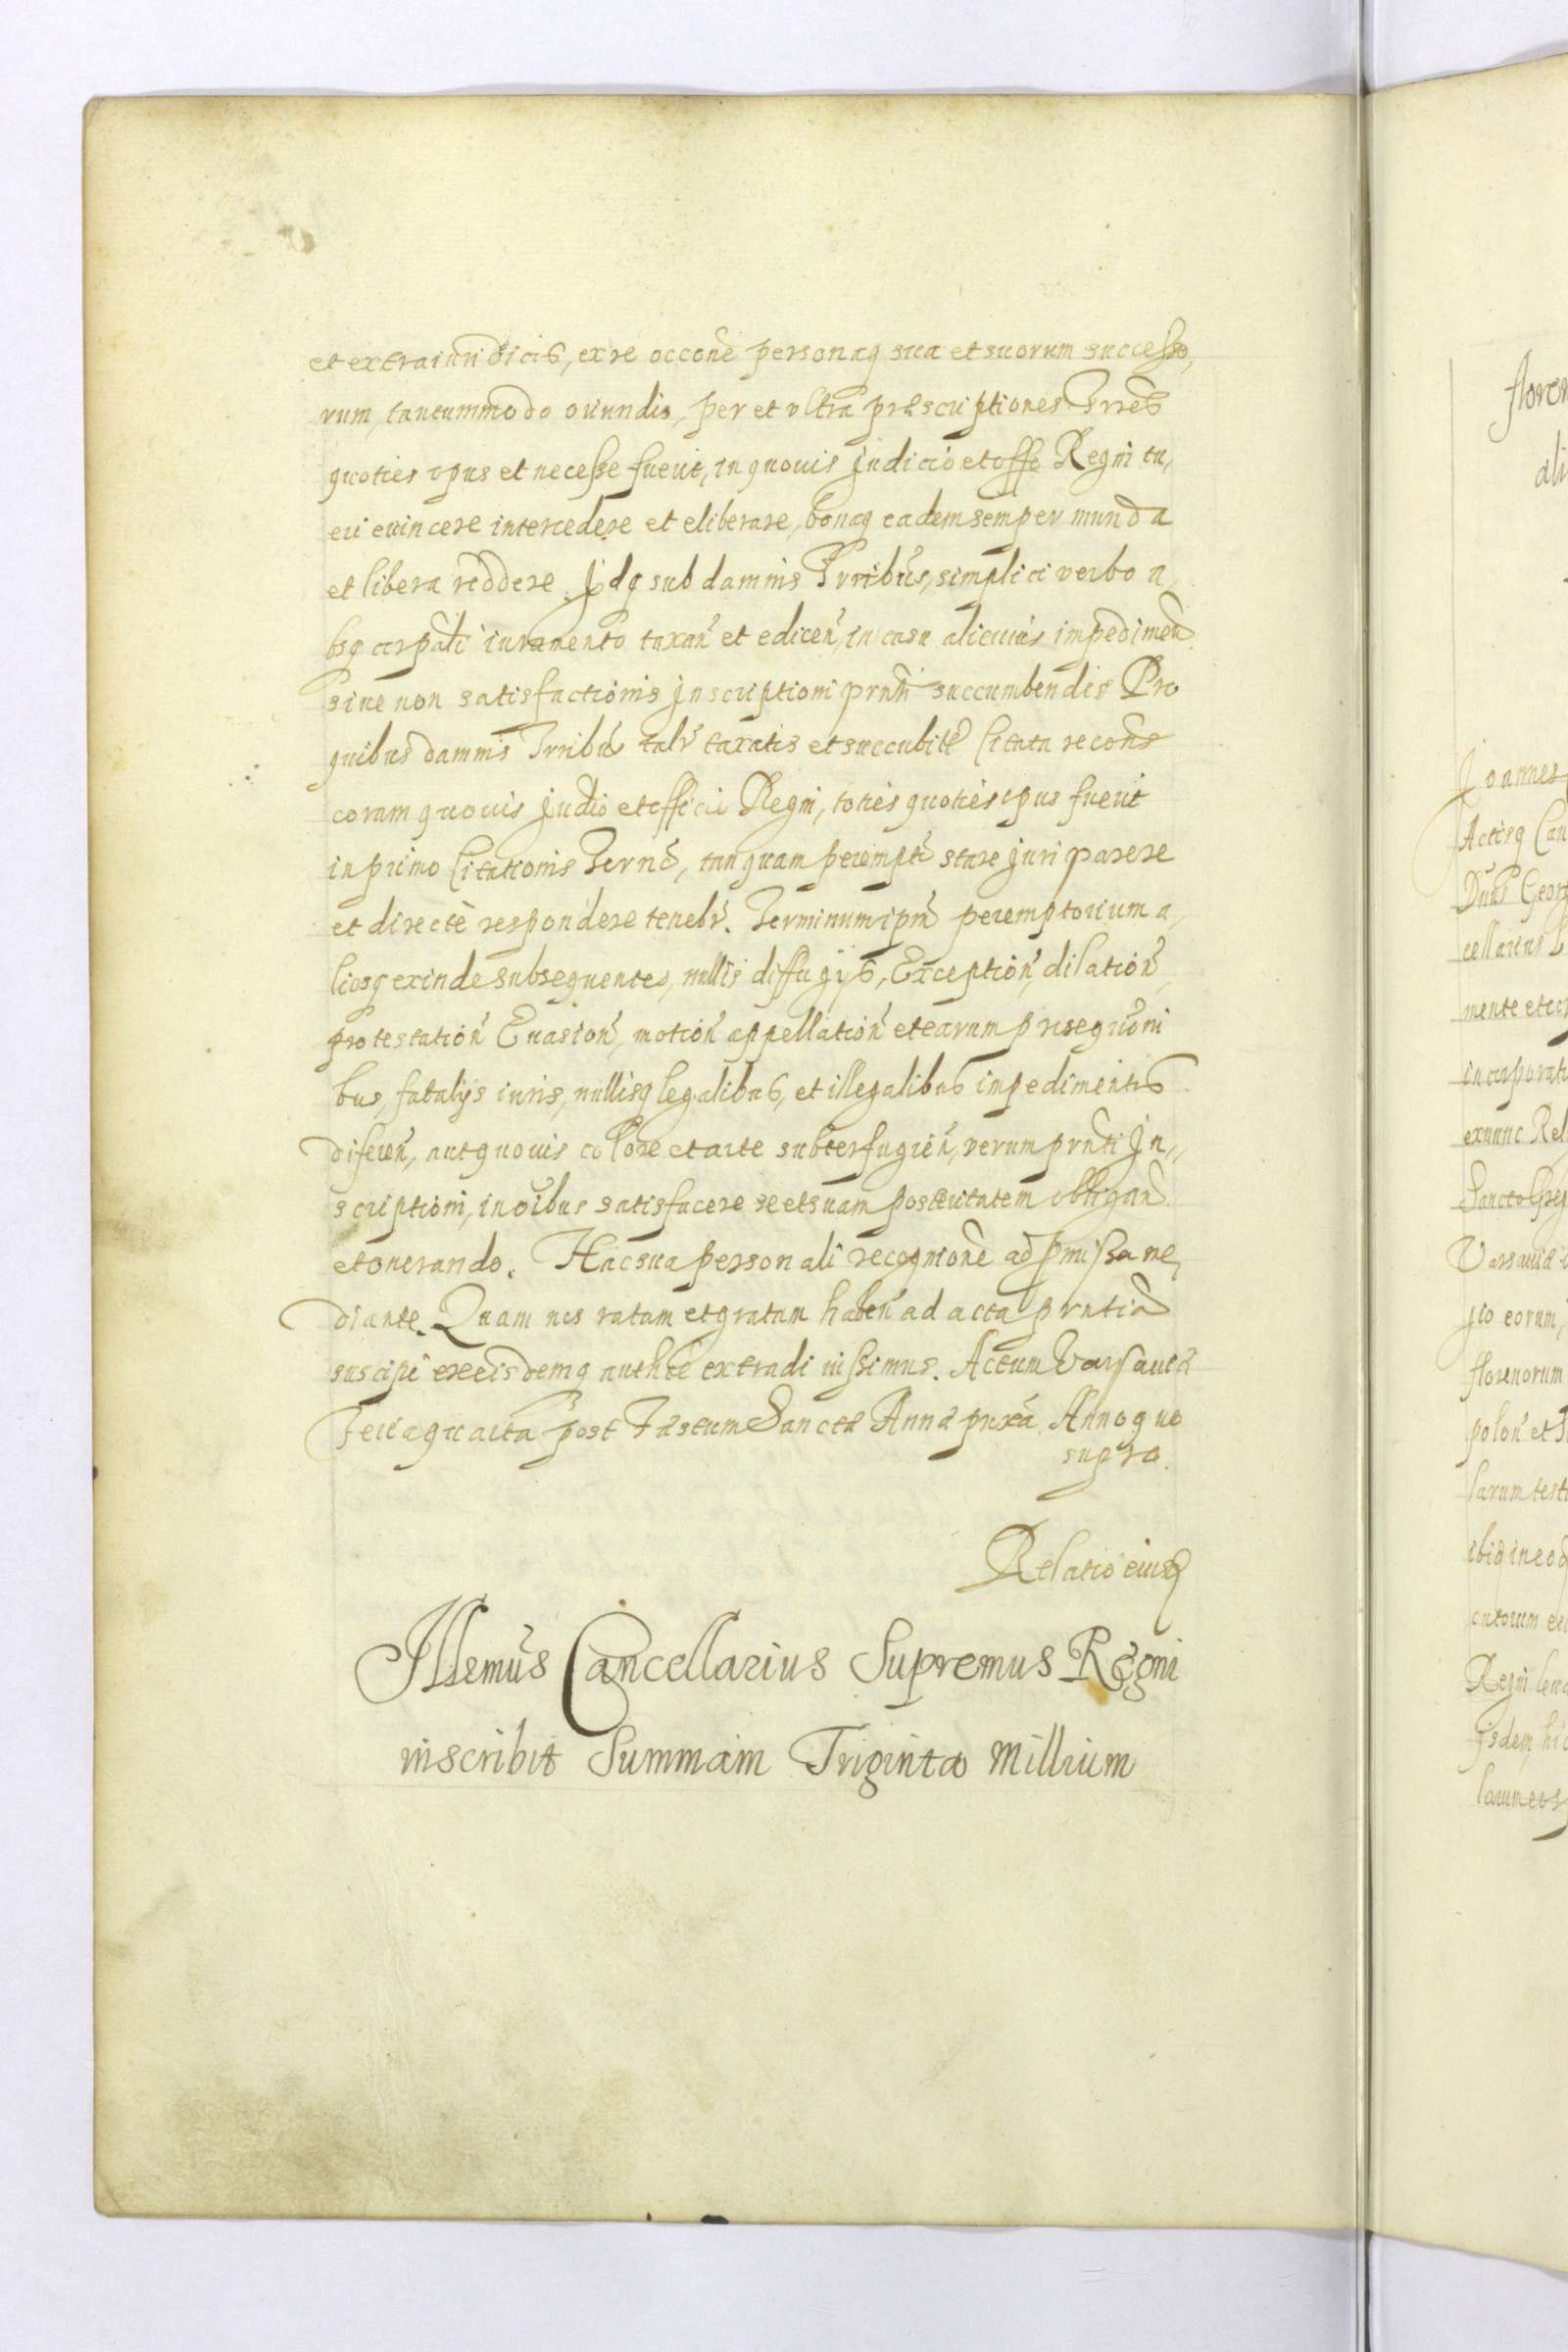 et extraiuridicis, ex re occōne personaq sua et suorum successo,
rum, tantummodo oriundis, per et vltra præscriptiones Trrēs
quoties opus et necesse fuerit, in quouis Judicio et offo Regni tu,
eri euincere intercedere et eliberare, bonaq eadem semper munda
et libera reddere. Idq sub damnis Trribus, simplici verbo a,
bsq corpāli iuramento taxan̄ et edicen̄, in casu alicuius impedimen̄
siue non satisfactionis Inscriptioni prnti succumbendis Pro
quibus damnis Trribus talr taxatis et succubit Citata recons
coram quouis Judio et officii Regni, toties quoties opus fuerit
in primo Citationis Termo, tanquam perempto stare juri parere
et directè respondere tenebr. Terminum ipm peremptorium a,
liosq exinde subsequentes, nullis diffugijs, Exception̄, dilation̄,
protestation̄ Euasion̄, motion̄ appellation̄ et earum prosequōni
bus, fatalijs iuris, nullisq legalibus, et illegalibus impedimentis
diferen̄, aut quouis colore et arte subterfugien̄, verum prnti In,,
scriptioni, in oibus satisfacere se et suam posteritatem obligand
et onerando. Hac sua personali recognione ad pmissa me,
diante. Quam nos ratam et gratam haben̄ ad acta prntia
suscipi ex eisdemq authce extradi iussimus. Actum Varsauiæ
Feria quarta post Festum Sanctæ Annæ proxa. Anno quo
supra.
Relatio eiusq
Illemus Cancellarius Supremus Regni
inscribit Summam Triginta Millium
floren
ali
Joannes
Actisq Can
Duas Georg
cellarius
mente et cor
incorporat
ex nunc Rel
Sancto Greg
Varsauiæ
gio eorum,
florenorum
polon̄ et
larum test
ibid in eod
cutorum
Regni
jsdem hic